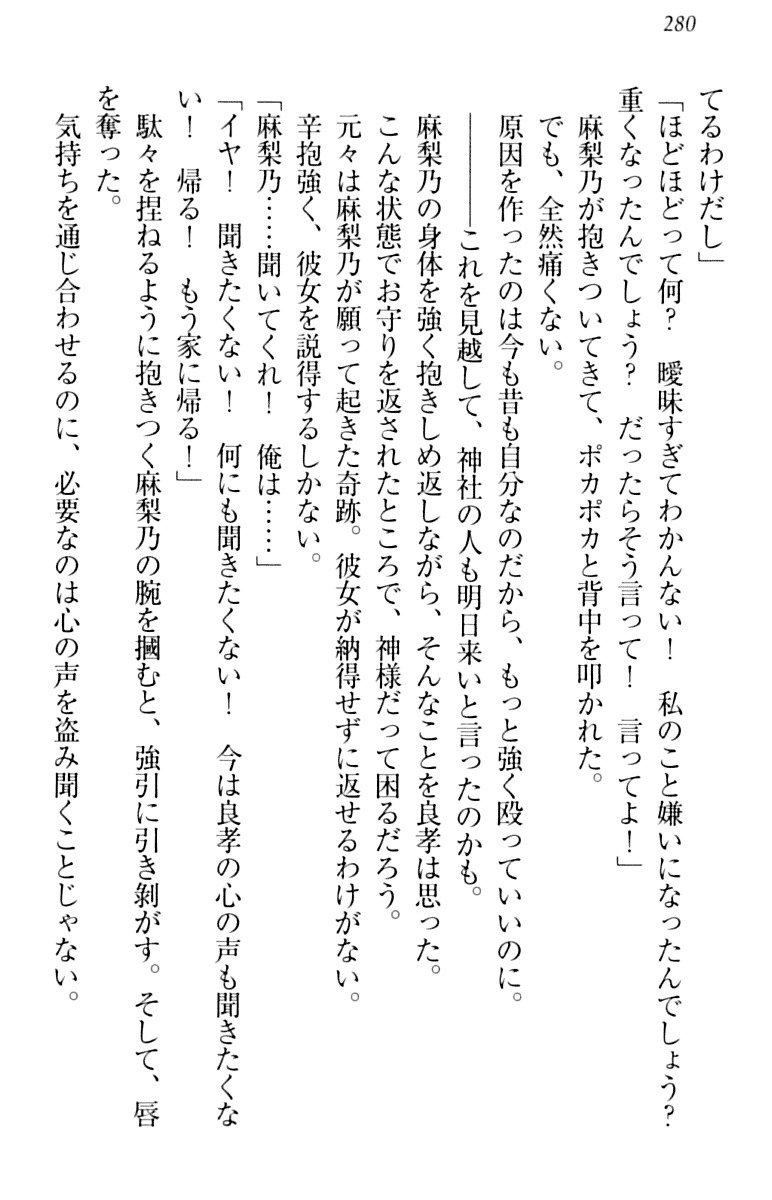 280
てるわけだし」
「ほどほどって何?　曖昧すぎてわかんない!　私のこと嫌いになったんでしょう?
重くなったんでしょう?　だったらそう言って!　言ってよ!」
　麻梨乃が抱きついてきて、ポカポカと背中を叩かれた。
　でも、全然痛くない。
　原因を作ったのは今も昔も自分なのだから、もっと強く殴っていいのに。
　――――これを見越して、神社の人も明日来いと言ったのかも。
　麻梨乃の身体を強く抱きしめ返しながら、そんなことを良孝は思った。
　こんな状態でお守りを返されたところで、神様だって困るだろう。
　元々は麻梨乃が願って起きた奇跡。彼女が納得せずに返せるわけがない。
　辛抱強く、彼女を説得するしかない。
「麻梨乃……聞いてくれ!　俺は……」
「イヤ!　聞きたくない!　何にも聞きたくない!　今は良孝の心の声も聞きたくな
い!　帰る!　もう家に帰る!」
　駄々を捏ねるように抱きつく麻梨乃の腕を摑むと、強引に引き剝がす。そして、唇
を奪った。
　気持ちを通じ合わせるのに、必要なのは心の声を盗み聞くことじゃない。